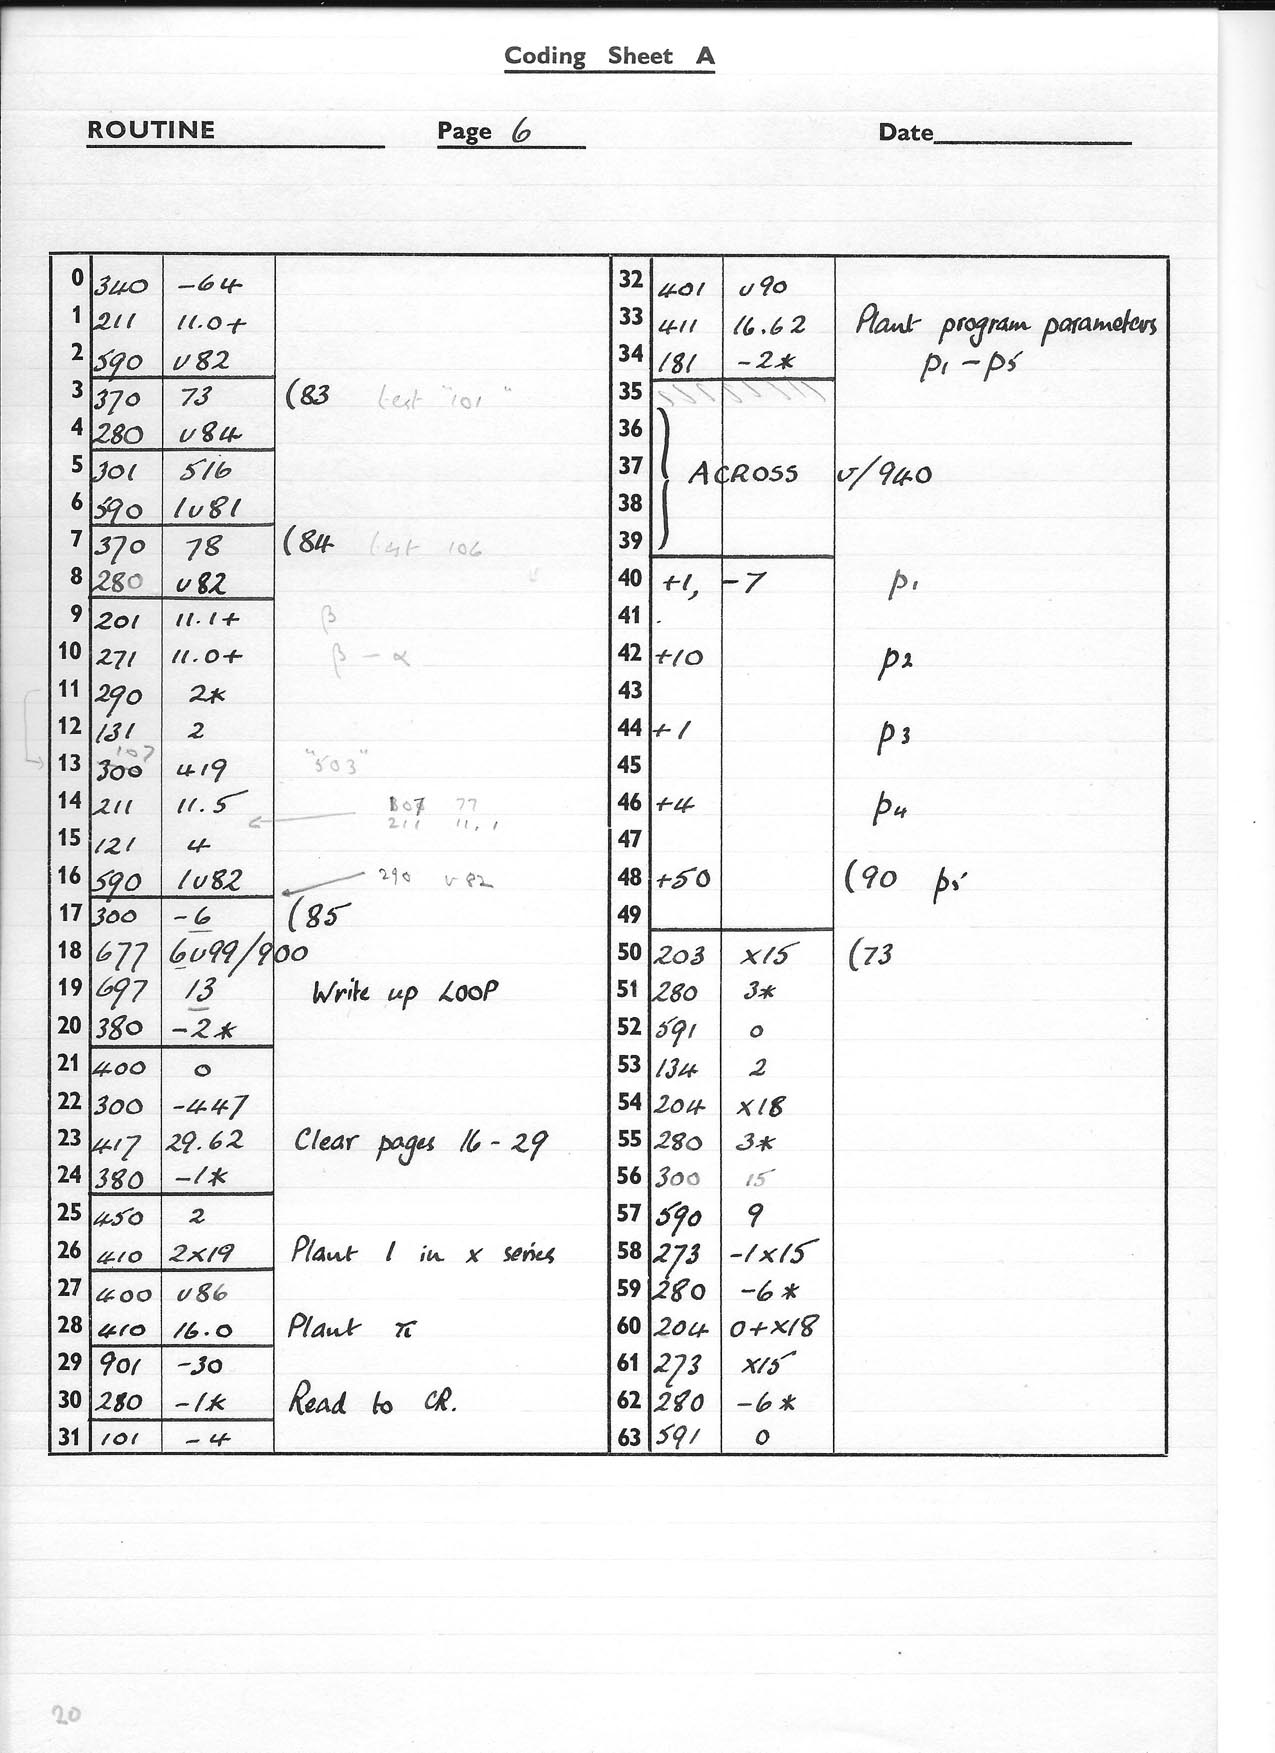 Coding Sheet A
ROUTINE Page 6 Date
0 340 -64
1 211 11.0+
2 590 v82
3 370 73 (83 test "101"
4 280 v84
5 301 516
6 590 1v81
7 370 78 (84 106
8 280 v82
9 201 11.1+ β
10 271 11.0+ β - α
11 290 2*
12 131 2
107
13 300 419 "503"
14 211 11.5 77
211 11.1
15 121 4
16 590 1v82 290 v82
17 300 -6 (85
18 677 6v99/900
19 697 13 Write up LOOP
20 380 -2*
21 400 0
22 300 -447
23 417 29.62 Clear pages 16 - 29
24 380 -1*
25 450 2
26 410 2x19 Plant 1 in x series
27 400 v86
28 410 16.0 Plant π
29 901 -30
30 280 -1* Read to CR.
31 101 -4
32 401 v90
33 411 16.62 Plant program parameters
34 181 -2* p1 - p5
35
36
37 ACROSS v/940
38
39
40 +1, -7 p1
41 .
42 +10 p2
43
44 +1 p3
45
46 +4 p4
47
48 +50 (90 p5
49
50 203 x15 (73
51 280 3*
52 591 0
53 134 2
54 204 x18
55 280 3*
56 300 15
57 590 9
58 273 -1x15
59 280 -6*
60 204 0+x18
61 273 x15
62 280 -6*
63 591 0
20